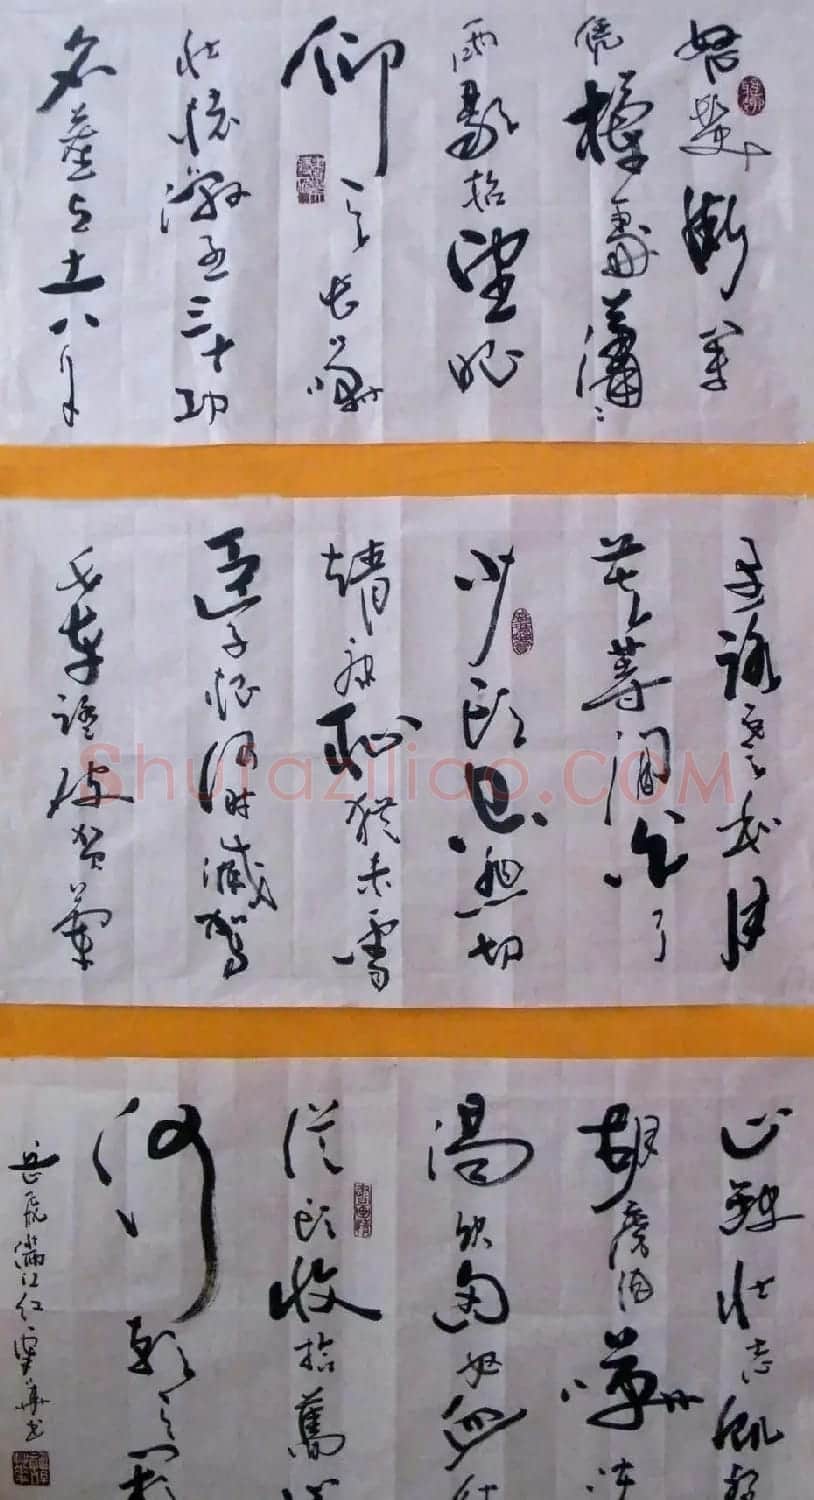 怒髮衝冠
凭欄處瀟〻
雨歇抬望眼
仰天長嘯
壯懷激烈三十功
名塵与土八千
里路雲和月
莫等閒白了
少頭空悲切
靖康恥猶未雪
臣子恨何時滅駕
長車踏破賀蘭
山缺壯志飢餐
胡虜肉笑談
渴飲匈奴血待
從頭收拾舊山
河朝天闕
岳飛滿江紅 華書
Shufaziliao.COM